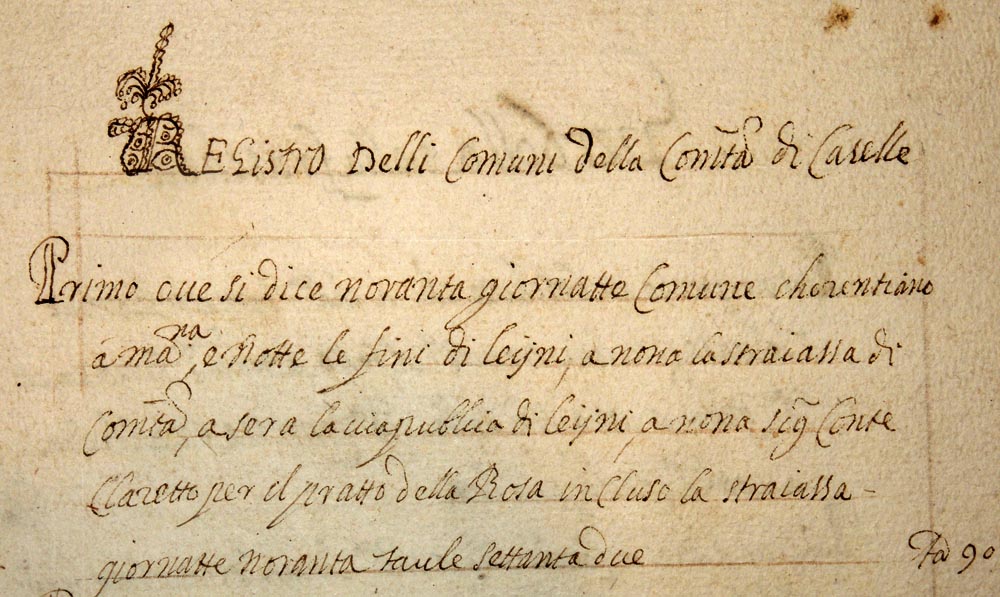 REGistro Delli Comuni della Comtà di Caselle
Primo oue si dice noranta giornatte Comune cherentiano
a ma.na, e Notte le fini di leijni, a nona la straiassa di
Comtà, a sera la uia publica di leijni, a nona sig Conte
Claretto per il pratto della Rosa in Cluso la straiassa -
giornatte noranta taule settanta due 90